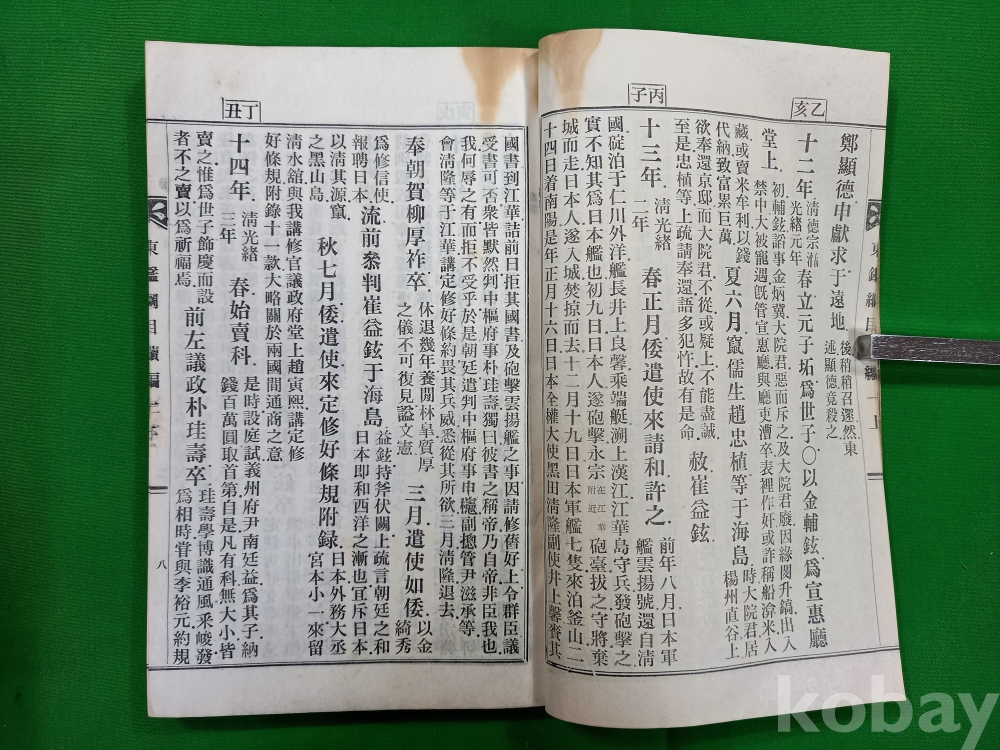 乙亥
鄭顯德申獻求于遠地
後稍稍召還然東
述顯德竟殺之
十二年
淸德宗
光緖元年
春立元子坧爲世子○以金輔鉉爲宣惠廳
堂上
初輔鉉諂事金炳冀大院君惡而斥之及大院君廢因緣閔升鎬出入
禁中大被寵遇旣管宣惠廳與廳吏漕卒表裡作奸或許稱船渰米入
藏或賣米牟利以錢
代納致富累巨萬
夏六月竄儒生趙忠植等于海島
時大院君居
楊州直谷上
欲奉還京邸而大院君不從或疑上不能盡誠
至是忠植等上疏請奉還語多犯忤故有是命
赦崔益鉉
丙子
十三年
淸光緖
二年
春正月倭遣使來請和許之
前年八月日本軍
艦雲揚號還自淸
國碇泊于仁川外洋艦長井上良馨乘端艇溯上漢江江華島守兵發砲擊之
實不知其爲日本艦也初九日日本人遂砲擊永宗
在江華
附近
砲臺拔之守將棄
城而走日本人遂入城焚掠而去十二月十九日日本軍艦七隻來泊釜山二
十四日着南陽是年正月十六日日本全權大使黑田淸隆副使井上馨賚其
國書到江華詰前日拒其國書及砲擊雲揚艦之事因請修舊好上令群臣議
受書可否衆皆默然判中樞府事朴珪壽獨曰彼書之稱帝乃自帝非臣我也
我何辱之有而拒不受乎於是朝廷遣判中樞府事申櫶副摠管尹滋承等
會淸隆等于江華講定修好條約畏其兵威悉從其所欲三月淸隆退去
奉朝賀柳厚祚卒
休退幾年養閒林皐質厚
之儀不可復見謚文憲
三月遣使如倭
以金
綺秀
爲修信使
報聘日本
流前參判崔益鉉于海島
益鉉持斧伏闕上疏言朝廷之和
日本即和西洋之漸也宜斥日本
以淸其源竄
之黑山島
秋七月倭遣使來定修好條規附錄
日本外務大丞
宮本小一來留
淸水舘與我講修官議政府堂上趙寅熙講定修
好條規附錄十一款大略關於兩國間通商之意
丁丑
十四年
淸光緖
三年
春始賣科
是時設庭試義州府尹南廷益爲其子納
錢百萬圓取首第自是凡有科無大小皆
賣之惟爲世子飾慶而設
者不之賣以爲祈福焉
前左議政朴珪壽卒
珪壽學博識通風采峻發
爲相時嘗與李裕元約規
東鑑綱目續編
八
kobay